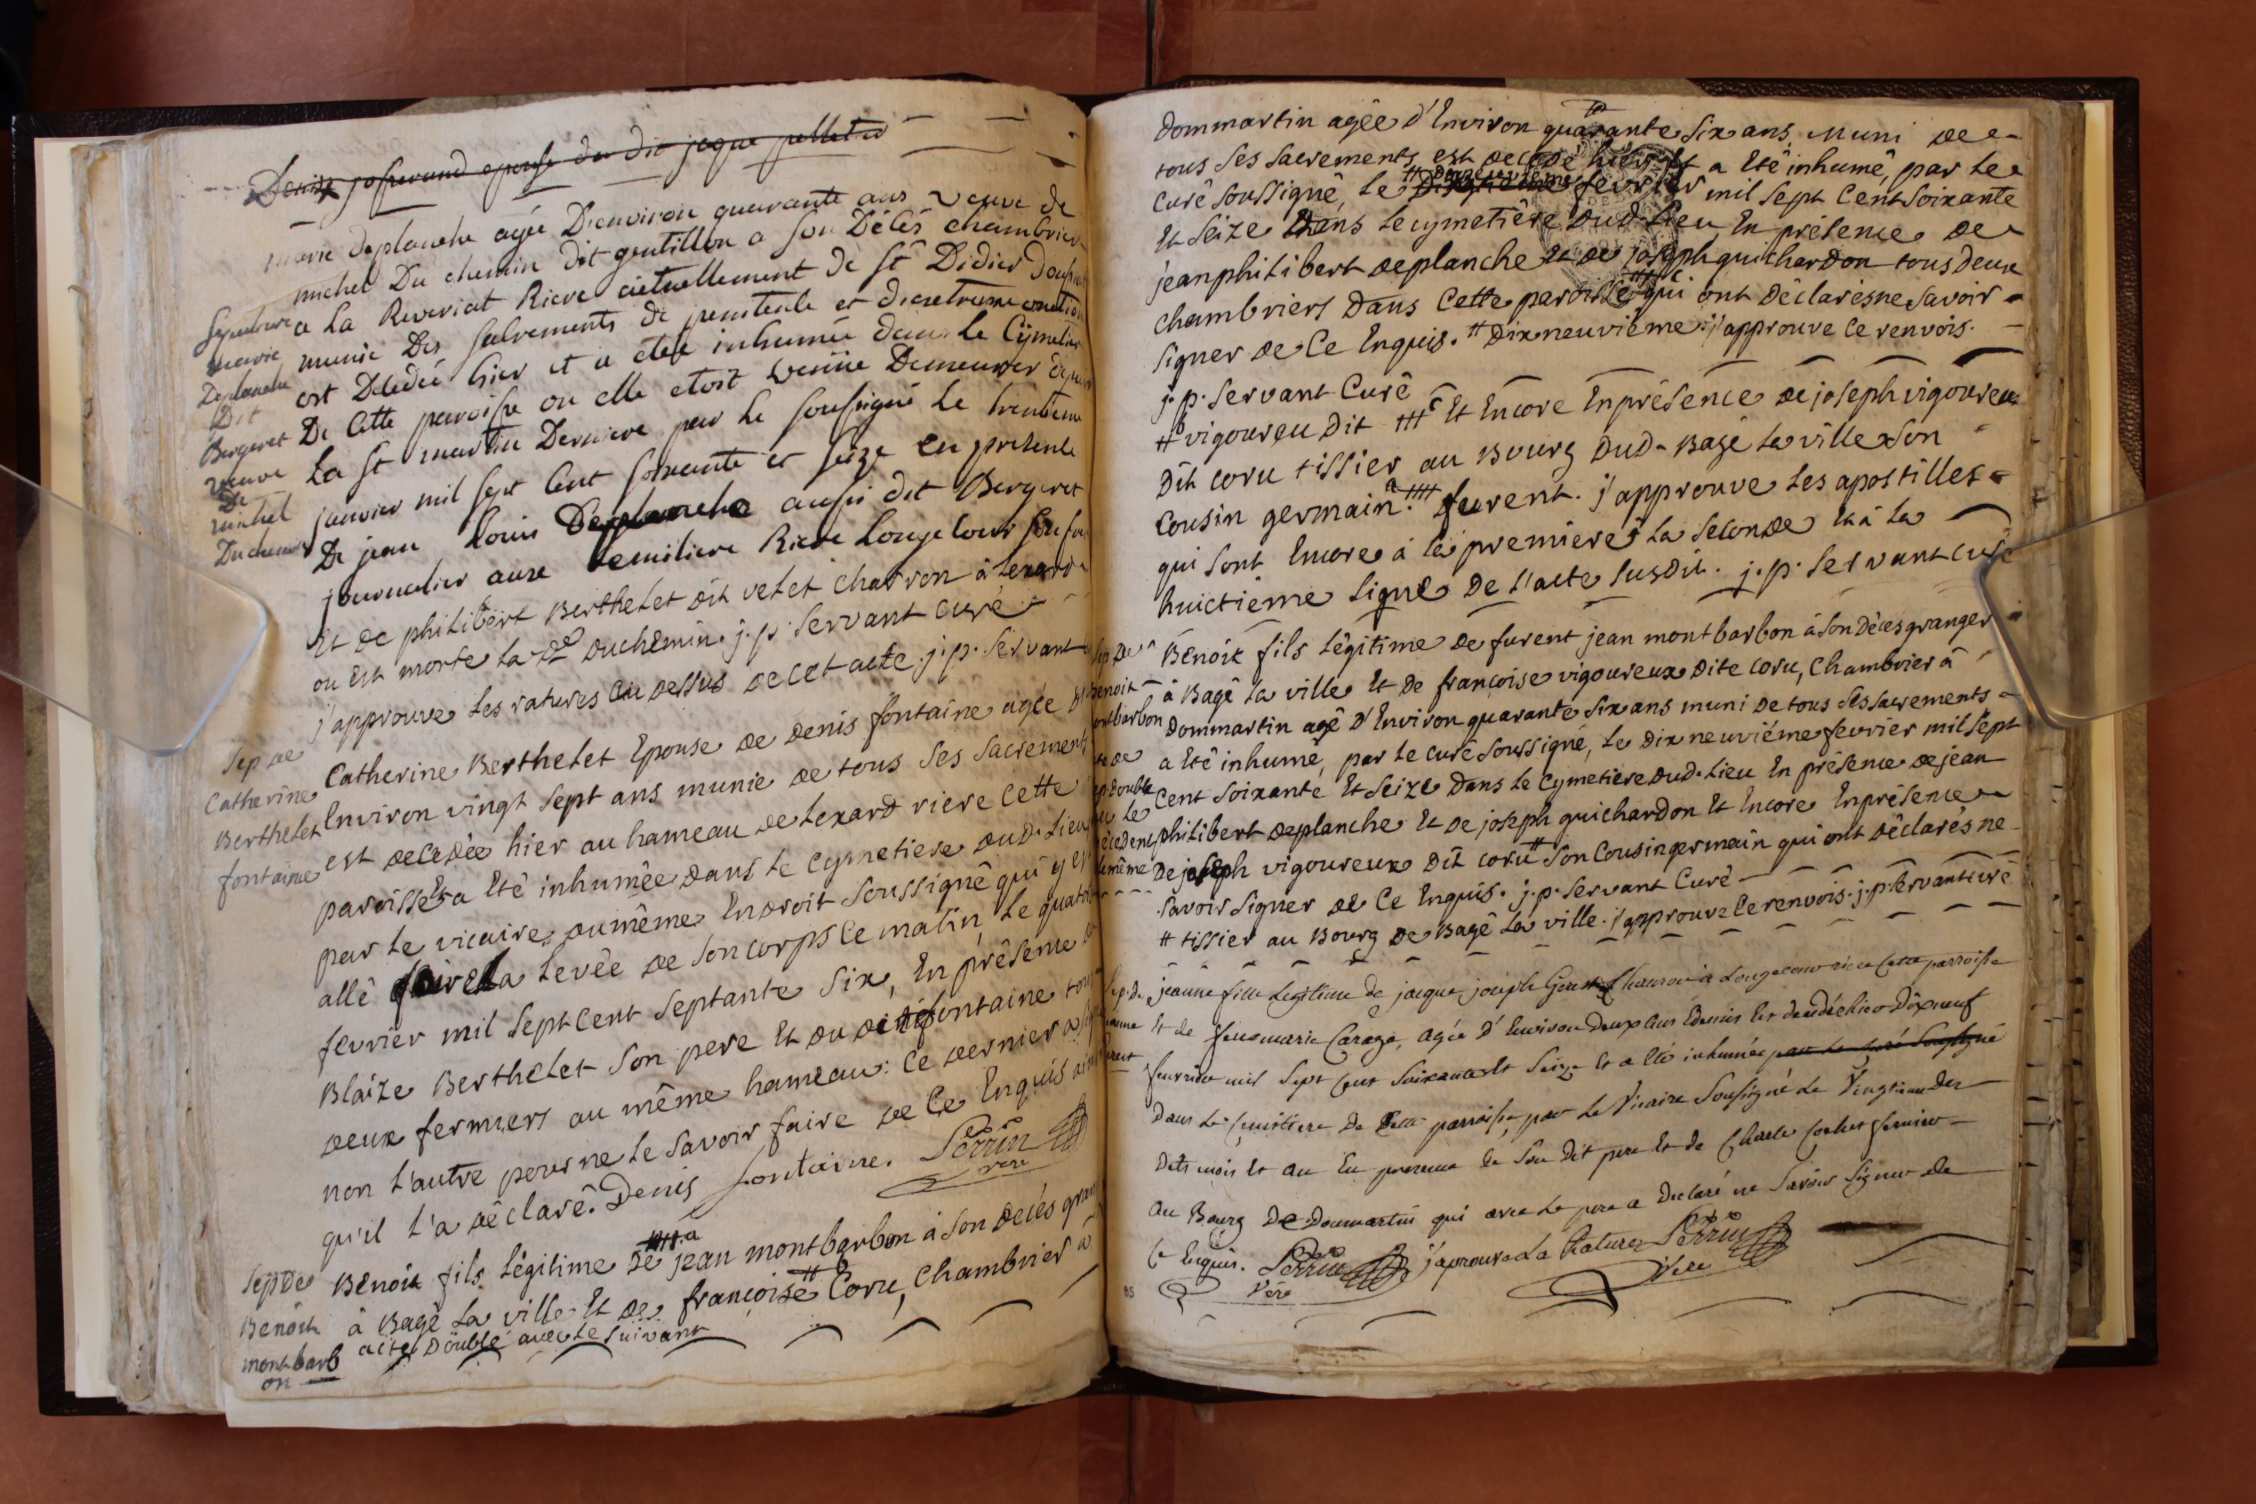 Denise joserand epouse du dit jaque pelletier
marie deplanche agée D'environ quarante ans veuve de
michel Du chemin dit gentillon a son Délés chambrier
Sepulture a la Reveriat Riere actuellement de st Didier
marie munie Des salvements de penitente et
Deplanche est Delédée hier et a eté inhumée dans le Cÿmetier
Dit
Bergeret De Cette paroisse ou elle etoit venüe Demeurer depuis
veuve La st martin Derniere par le soussigné le trentieme
De
michel janvier mil sept Cent soixante et seize en presente
Duchemin De jean Louis Deplanche aussi dit Bergeret
journalier aux Riere Longe Cour
Et de philibert Berthelet dit velet charron à Lexard
ou est morte la de duchemin. j. p. servant curé
j'approuve les ratures au dessus de cet acte. j. p. servant
Sep de
Catherine Catherine Berthelet Epouse de Denis fontaine agée D'
Berthelet Environ vingt sept ans munie de tous ses sacrements
fontaine est decedée hier au hameau de Lexard riere cette
paroisse Et a Eté inhumée dans le cymetiere dud. Lieu
par le vicaire, au même Endroit soussigné qui y est
allé faire la Levée de son corps ce matin, le quatrieme
fevrier mil sept cent septante six, En présence de
Blaize Berthelet son pere Et du dit fontaine tous
deux fermiers au même hameau: ce dernier a signé
non l'autre pour ne le savoir faire de ce Enquis ainsi
qu'il l'a déclaré. Denis fontaine. Perrin
vere
Sep de Benoit fils légitime de jean montbarbon à son décés gran
Benoit à Bagé La ville Et de françoise Coru, Chambrier à
montbarb acte Double avec le suivant
on
dommartin agée d'Environ quarante six ans, muni de
tous ses sacrements est decédé hier Et a Eté inhumé, par le
curé soussigné, le fevrier mil sept Cent soixante
Et seize Dans le cymetiére dud. Lieu En présence de
jean philibert deplanche Et de joseph guichardon tous deux
chambriers Dans Cette paroisse qui ont déclarés ne savoir
signer de Ce Enquis. # Dix neuviéme. j'approuve ce renvois.
j. p. servant Curé
# vigoureu dit ### Et Encore En présence de joseph vigoureux
dit coru tissier au Bourg dud. Bagé La ville son
Cousin germain. #### furent. j'approuve les apostilles
qui sont Encore à la premiere, à la seconde Et à la
huictieme ligne De l'acte susdit. j. p. servant curé
Sep de Benoit fils légitime de furent jean montbarbon à son décés granger
Benoit à Bagé la ville Et de françoise vigoureux dite coru, Chambrier à
ontbarbon Dommartin agé d'Environ quarante six ans muni de tous ses sacrements
a Eté inhumé, par le curé soussigné, le dix neuviéme fevrier mil sept
double Cent soixante Et seize Dans le Cymetiere dud. Lieu En présence de jean
philibert deplanche Et de joseph guichardon Et Encore En présence
même De joseph vigoureux dit coru # son Cousin germain qui ont déclarés ne
savoir signer de ce Enquis. j. p. servant Curé
# tissier au Bourg de Bagé La ville. j'approuve ce renvois. j. p. servant curé
Sep. de jeanne fille Legitime de jacque joseph à Longecour riere cette parroisse
Et de Carage, agée D'Environ Deux ans Edemis Est decedé hier Dixneuf
fevrier mil Sept Cent Soixante Et Seize Et a Eté inhumée par Le Curé Soussigné
Dans Le Cimitiere De Cette parroisse, par Le Vicaire Soussigné Le Vingtieme Des
Dits mois Et an En presence De Son Dit pere Et de Charle fermier
Au Bourg De Dommartin qui avec Le pere a Declaré ne Savoir Signer De
Ce Enquis. Perrin j'aprouve La Rature Perrin
Vere Vere